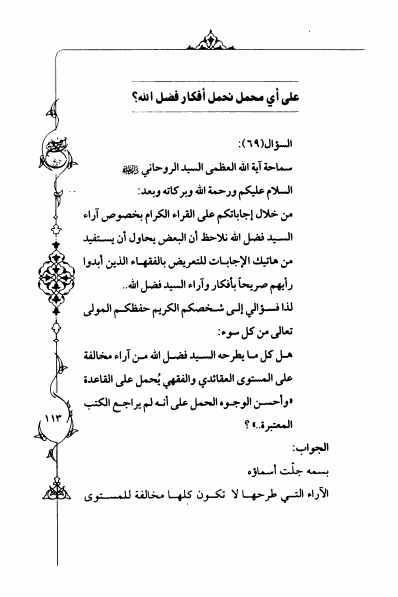 على أي محمل نحمل أفكار فضل الله؟
السؤال(٦٩):
سماحة آية الله العظمى السيد الروحاني
السلام عليكم ورحمة الله وبركاته وبعد:
من خلال إجاباتكم على القراء الكرام بخصوص آراء
السيد فضل الله نلاحظ أن البعض يحاول أن يستفيد
من هاتيك الإجابات للتعريض بالفقهاء الذين أبدوا
رأيهم صريحاً بأفكار وآراء السيد فضل الله..
لذا فسؤالي إلى شخصكم الكريم حفظكم المولى
تعالى من كل سوء:
هل كل ما يطرحه السيد فضل الله من آراء مخالفة
على المستوى العقائدي والفقهي يُحمل على القاعدة
«وأحسن الوجوه الحمل على أنه لم يراجع الكتب
المعتبرة..» ؟
الجواب:
بسمه جلّت أسماؤه
الآراء التي طرحها لا تكون كلها مخالفة للمستوى
١١٣